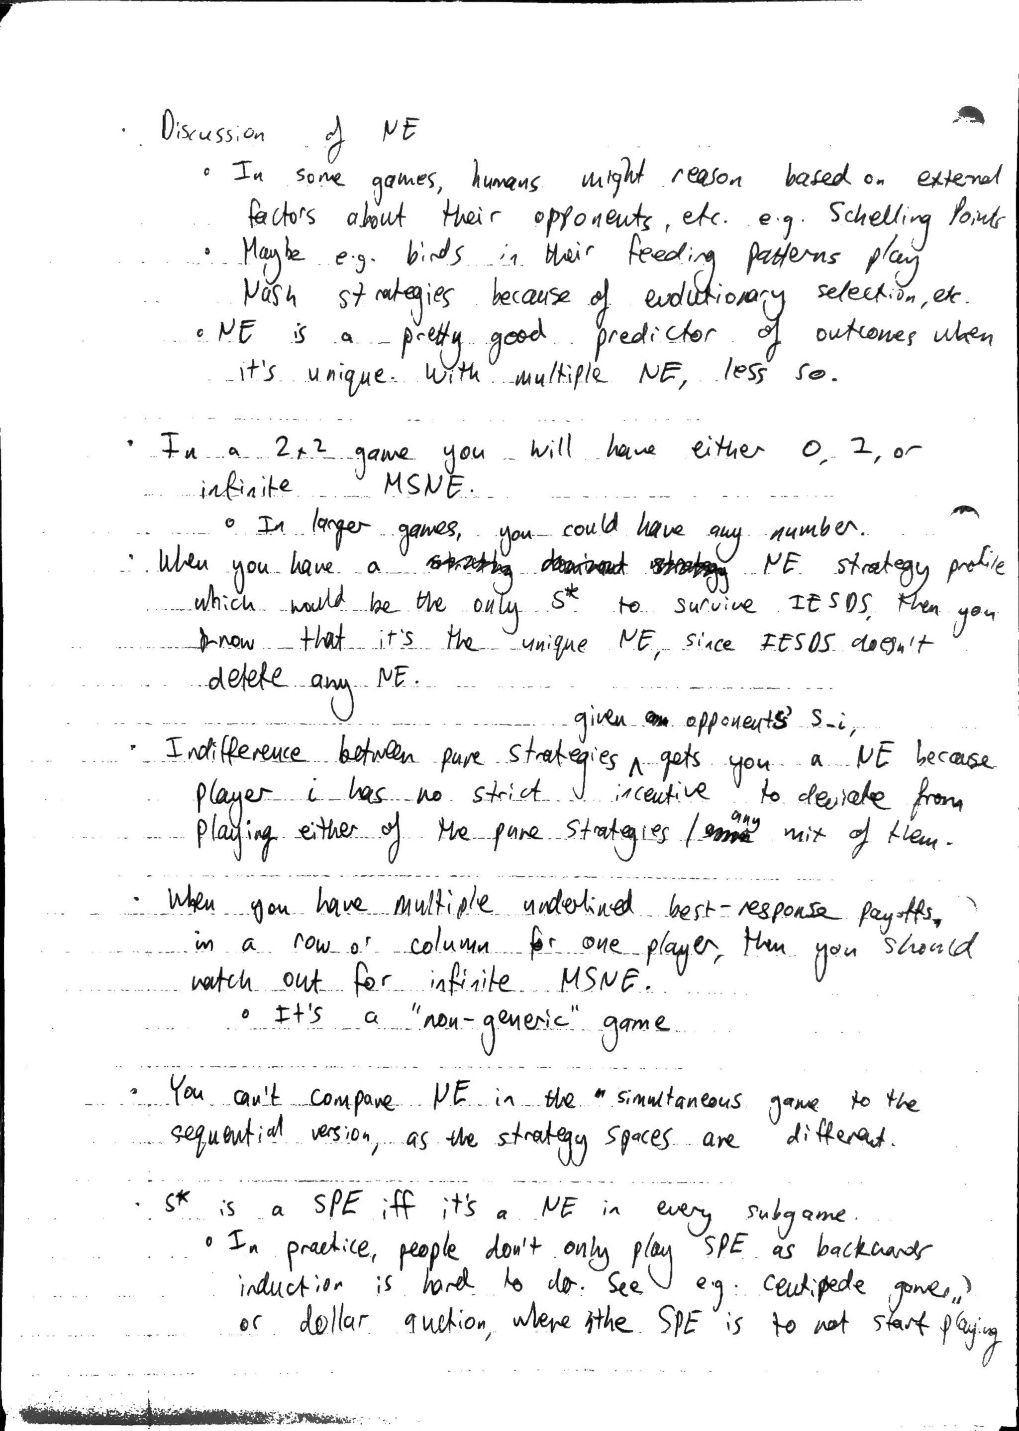 · Discussion of NE
◦ In some games, humans might reason based on external
factors about their opponents, etc. e.g. Schelling Points
◦ Maybe e.g. birds in their feeding patterns play
Nash strategies because of evolutionary selection, etc.
◦ NE is a pretty good predictor of outcomes when
it's unique. With multiple NE, less so.
· In a 2x2 game you will have either 0, 1, or
infinite MSNE.
◦ In larger games, you could have any number.
· When you have a NE strategy profile
which would be the only S* to survive IESDS, then you
know that it's the unique NE, since IESDS doesn't
delete any NE.
given opponents' S-i,
· Indifference between pure strategies ^ gets you a NE because
player i has no strict incentive to deviate from
any
playing either of the pure strategies / mix of them.
· When you have multiple underlined best-response payoffs,
in a row or column for one player, then you should
watch out for infinite MSNE.
◦ It's a "non-generic" game
· You can't compare NE in the simultaneous game to the
sequential version, as the strategy spaces are different.
· S* is a SPE iff it's a NE in every subgame.
◦ In practice, people don't only play SPE as backwards
induction is hard to do. See e.g. centipede games,
or dollar auction, where the SPE is to not start playing